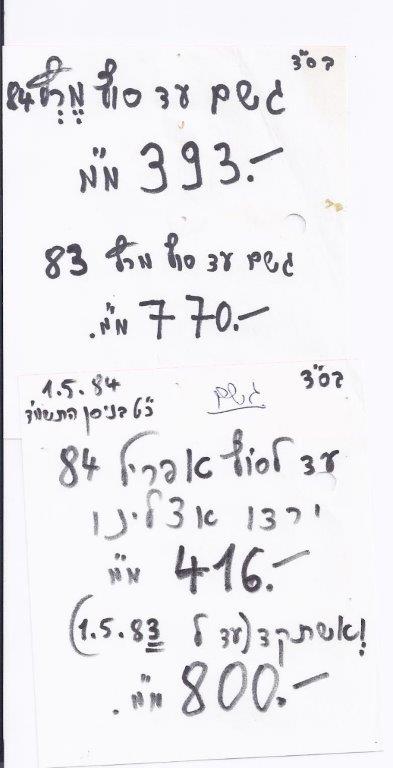 בס"ד
גשם עד סוף מֶרְץ 84
393.– מ"מ
גשם עד סוף מרץ 83
770.– מ"מ.
בס"ד
גשם
1.5.84
כ"ט בניסן התשמ"ד
עד לסוף אפריל 84
ירדו אצלינו
416.– מ"מ
ואשתקד (עד ל 1.5.83)
800.– מ"מ.